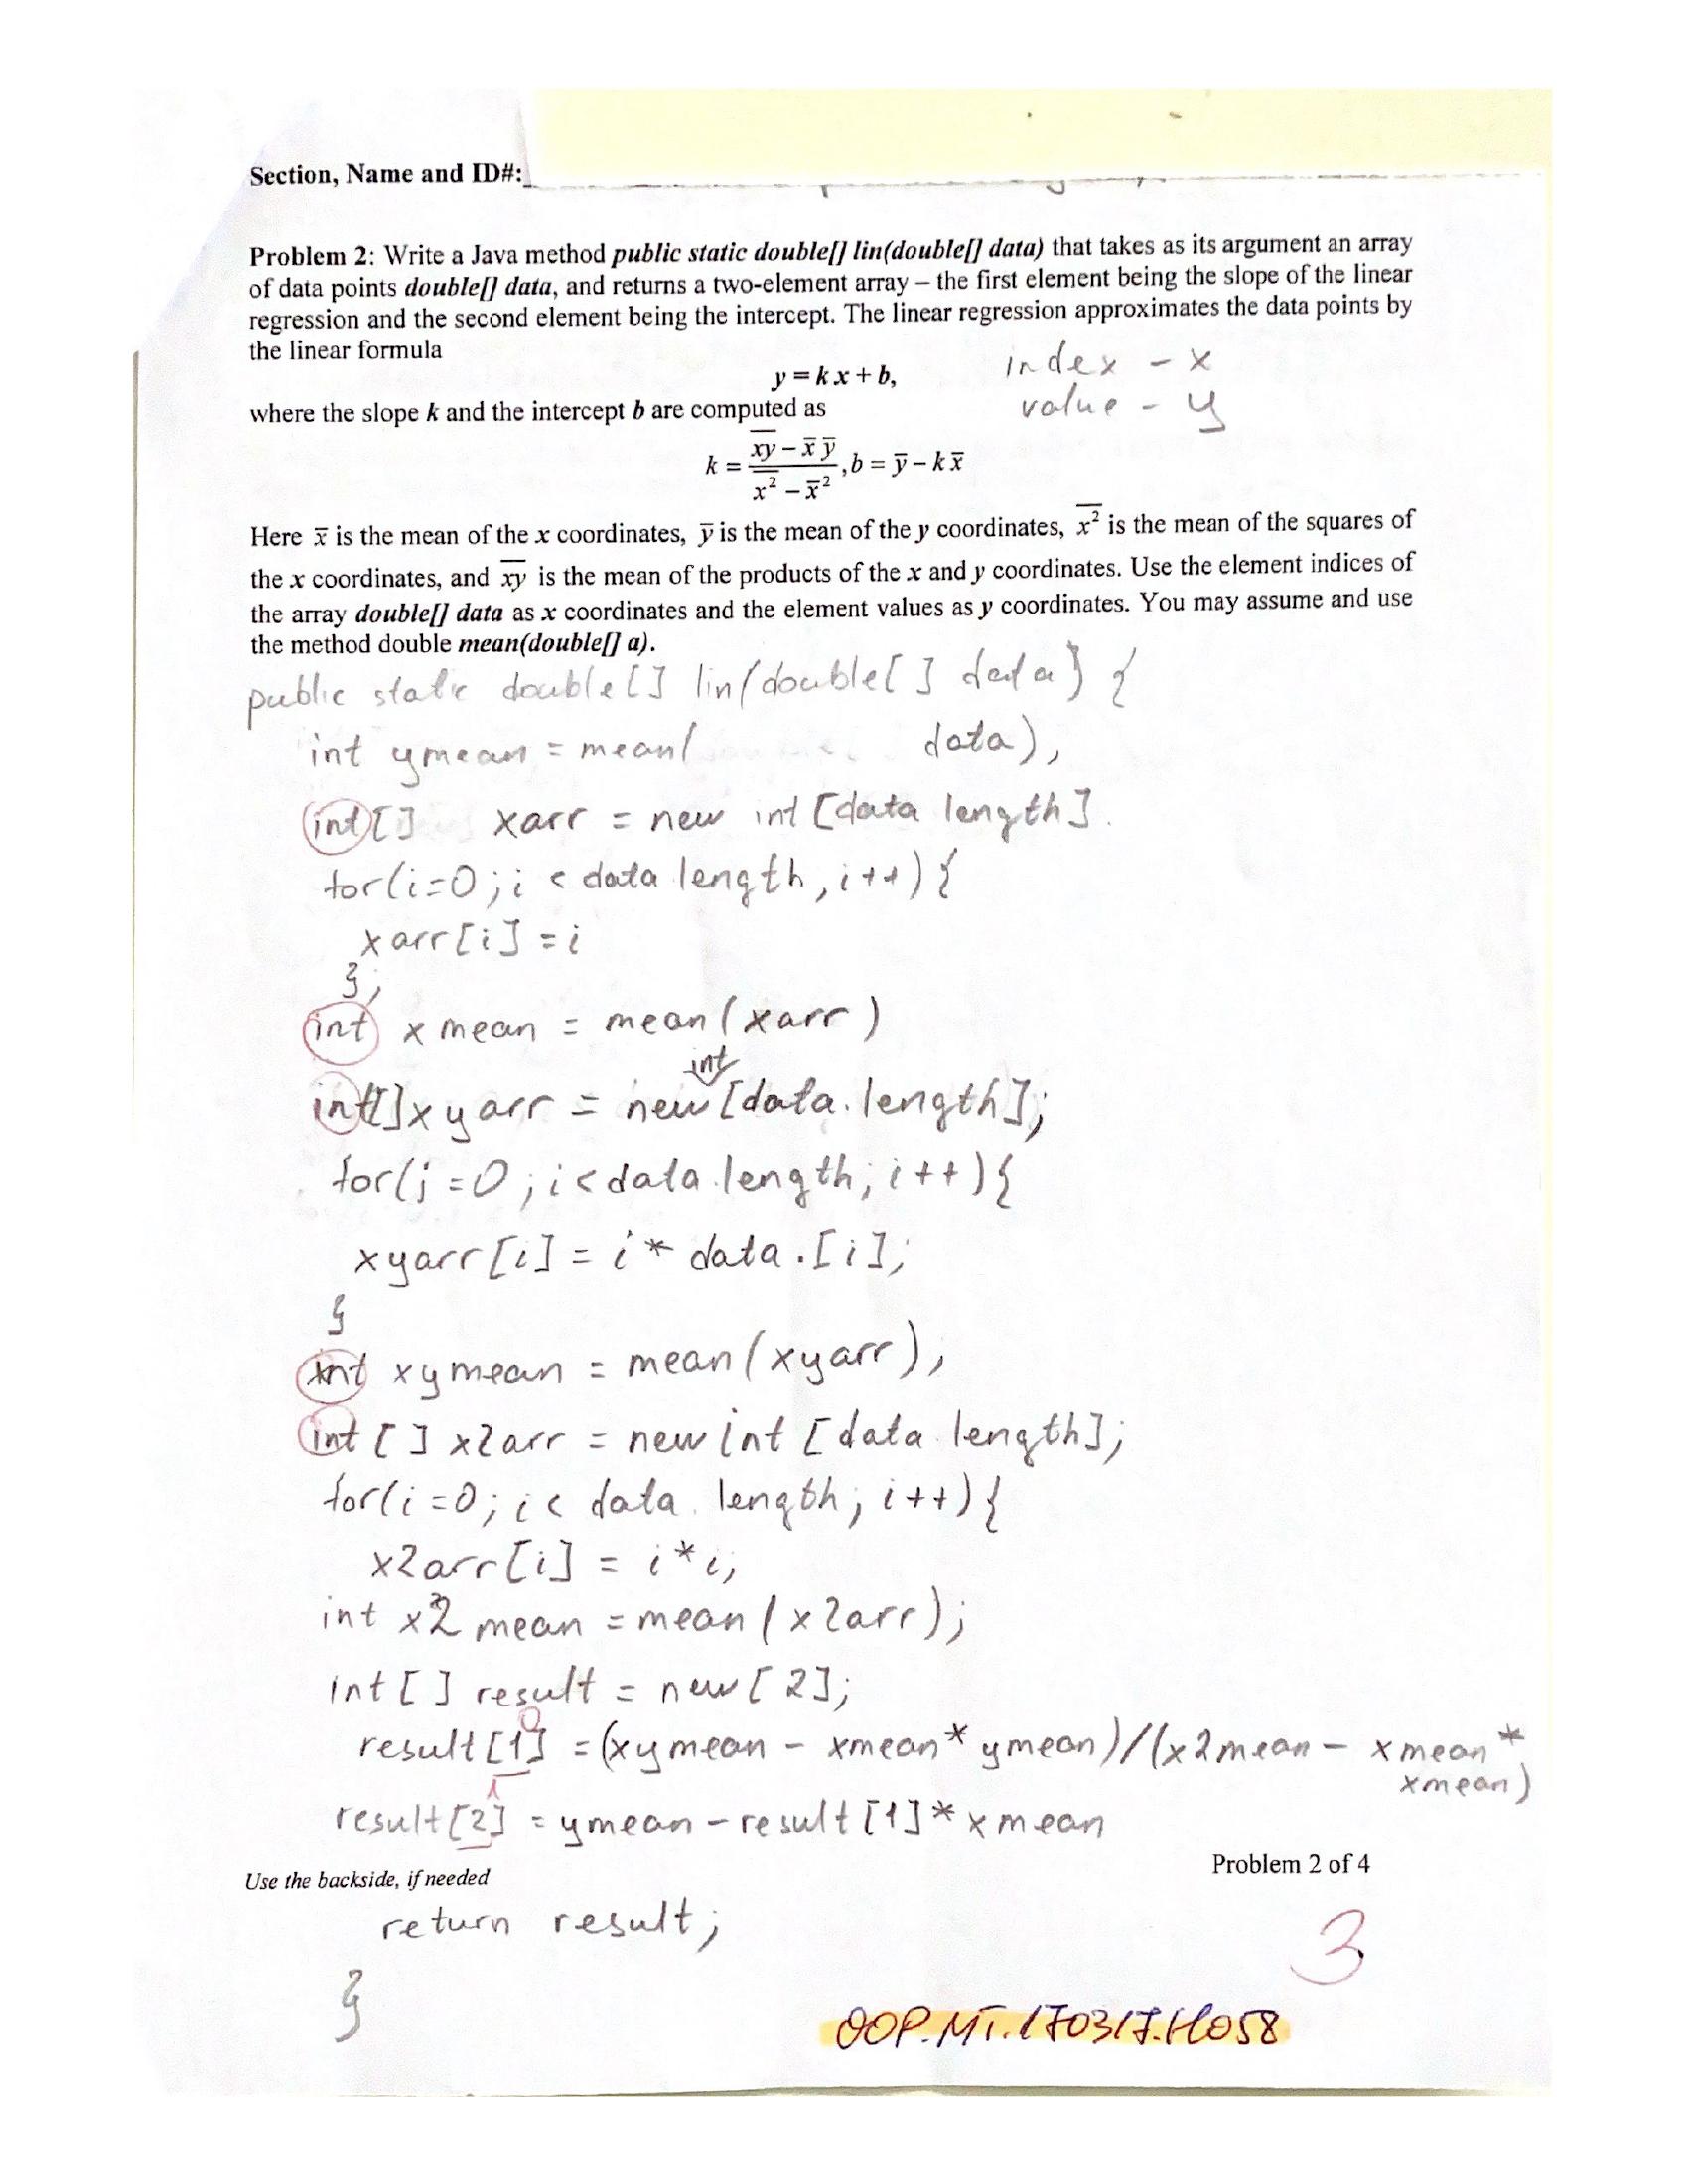 Section, Name and ID#:
Problem 2: Write a Java method public static double[] lin(double[] data) that takes as its argument an array
of data points double[] data, and returns a two-element array – the first element being the slope of the linear
regression and the second element being the intercept. The linear regression approximates the data points by
the linear formula
y = k x + b,
index - x
where the slope k and the intercept b are computed as
value - y
k = (\overline{xy} – x̄ ȳ) / (\overline{x²} – x̄²), b = ȳ – k x̄
Here x̄ is the mean of the x coordinates, ȳ is the mean of the y coordinates, \overline{x²} is the mean of the squares of
the x coordinates, and \overline{xy} is the mean of the products of the x and y coordinates. Use the element indices of
the array double[] data as x coordinates and the element values as y coordinates. You may assume and use
the method double mean(double[] a).
public static double[] lin(double[] data) {
int ymean = mean( data),
int[] xarr = new int [data length].
for(i=0; i < data length, i++){
xarr[i] = i
};
int xmean = mean(xarr)
int
int[] xyarr = new [data.length];
for(j=0; i<data.length; i++){
xyarr[i] = i * data.[i];
}
int xymean = mean(xyarr),
int [] x2arr = new int [data.length];
for(i=0; i< data.length; i++){
x2arr[i] = i*i,
int x2mean = mean(x2arr);
int [] result = new [2];
0
result[1] = (xymean - xmean* ymean)/(x2mean - xmean*
xmean)
1
result[2] = ymean - result[1]* xmean
Use the backside, if needed
Problem 2 of 4
return result;
3
}
OOP.MT.170317.H058